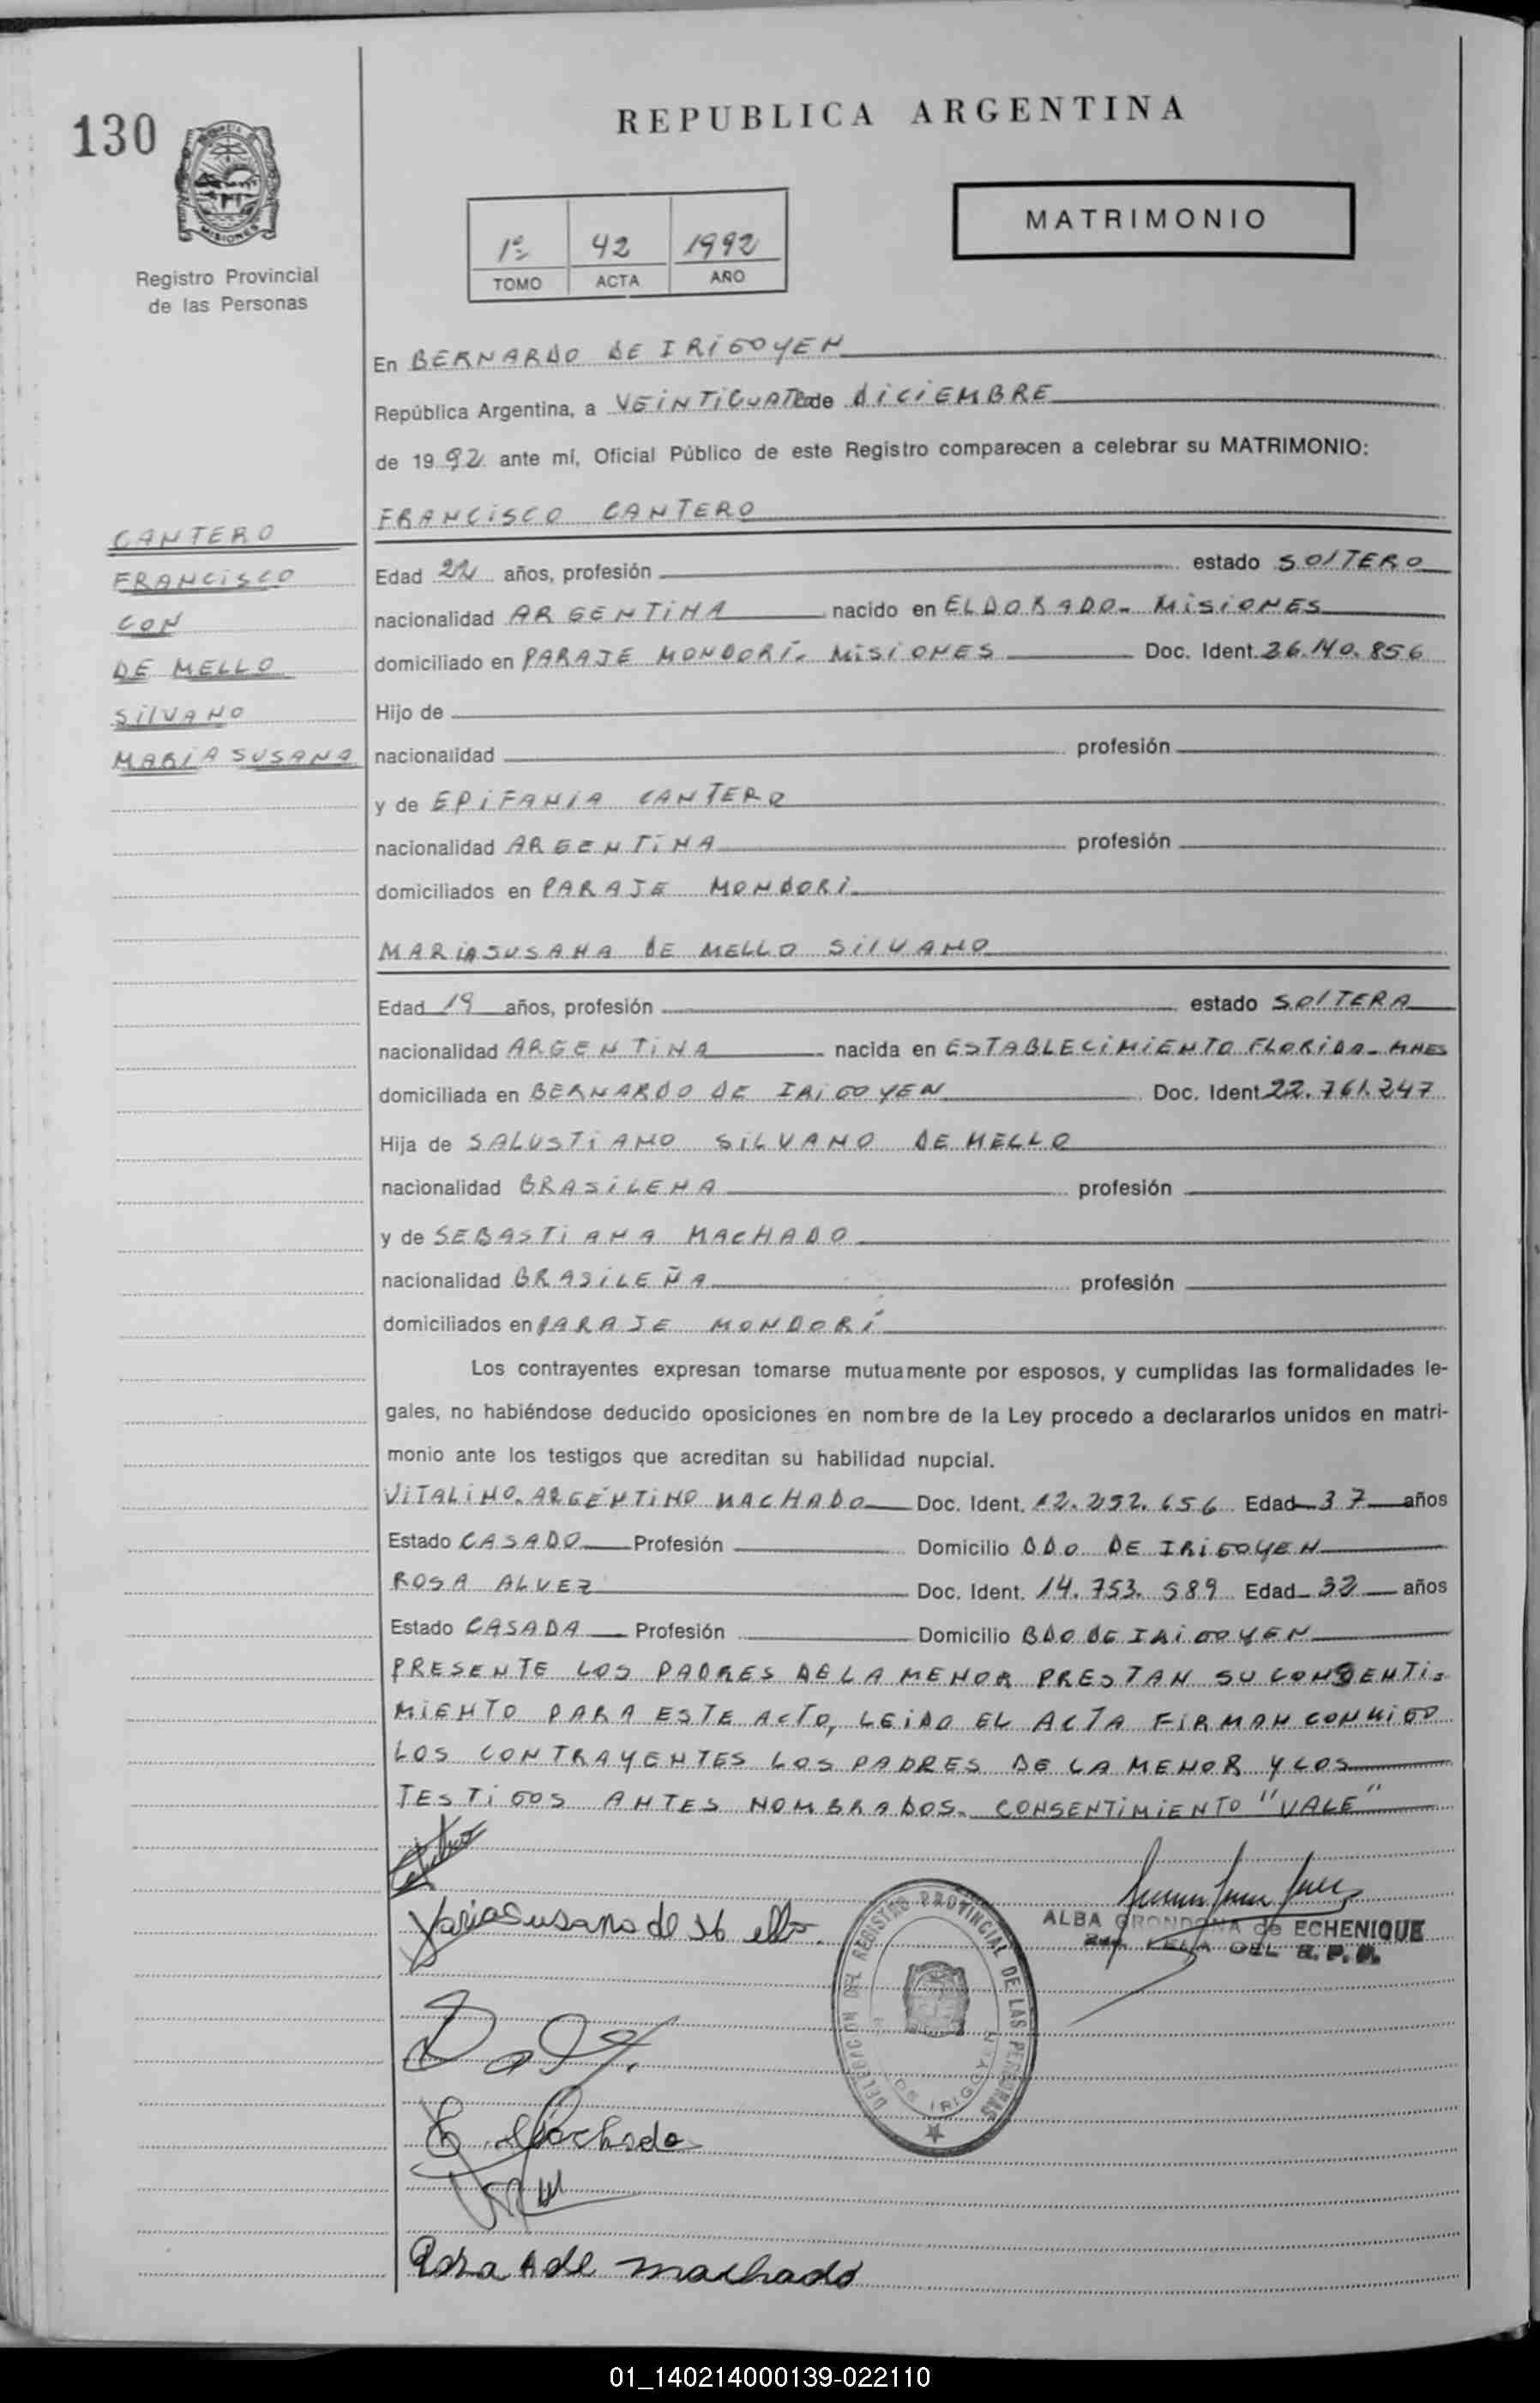 130
REPUBLICA ARGENTINA
MISIONES
Registro Provincial
de las Personas
1º 42 1992
TOMO ACTA AÑO
MATRIMONIO
En BERNARDO DE IRIGOYEN
República Argentina, a VEINTICUATRO de DICIEMBRE
de 1992 ante mí, Oficial Público de este Registro comparecen a celebrar su MATRIMONIO:
CANTERO
FRANCISCO
CON
DE MELLO
SILVANO
MARIA SUSANA
FRANCISCO CANTERO
Edad 22 años, profesión estado SOLTERO
nacionalidad ARGENTINA nacido en ELDORADO - MISIONES
domiciliado en PARAJE MONDORÍ - MISIONES Doc. Ident. 26.140.856
Hijo de
nacionalidad profesión
y de EPIFANIA CANTERO
nacionalidad ARGENTINA profesión
domiciliados en PARAJE MONDORI
MARIA SUSANA DE MELLO SILVANO
Edad 19 años, profesión estado SOLTERA
nacionalidad ARGENTINA nacida en ESTABLECIMIENTO FLORIDA - MNES
domiciliada en BERNARDO DE IRIGOYEN Doc. Ident 22.761.247
Hija de SALUSTIANO SILVANO DE MELLO
nacionalidad BRASILENA profesión
y de SEBASTIANA MACHADO
nacionalidad BRASILEÑA profesión
domiciliados en PARAJE MONDORÍ
Los contrayentes expresan tomarse mutuamente por esposos, y cumplidas las formalidades le-
gales, no habiéndose deducido oposiciones en nombre de la Ley procedo a declararlos unidos en matri-
monio ante los testigos que acreditan su habilidad nupcial.
VITALINO ARGENTINO MACHADO Doc. Ident. 12.252.656 Edad 37 años
Estado CASADO Profesión Domicilio BDO DE IRIGOYEN
ROSA ALVEZ Doc. Ident. 14.753.589 Edad 32 años
Estado CASADA Profesión Domicilio BDO DE IRIGOYEN
PRESENTE LOS PADRES DE LA MENOR PRESTAN SU CONSENTI-
MIENTO PARA ESTE ACTO, LEIDO EL ACTA FIRMAN CONMIGO
LOS CONTRAYENTES LOS PADRES DE LA MENOR Y LOS
TESTIGOS ANTES NOMBRADOS. CONSENTIMIENTO "VALE"
Maria Susana de Mello.
ALBA GRONDONA de ECHENIQUE
DEL R.P.P.
DELEGACION DEL REGISTRO PROVINCIAL DE LAS PERSONAS
DE IRIGOYEN
Machado
Rosa A de machado
01_140214000139-022110